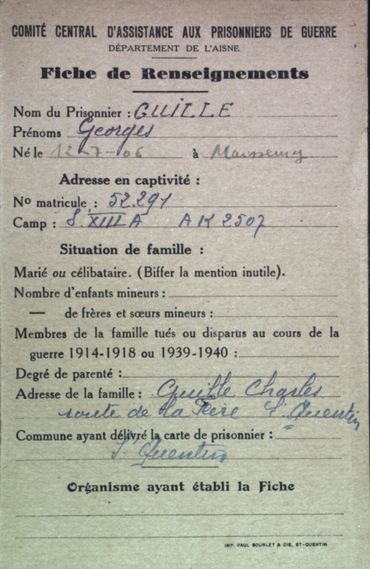 COMITÉ CENTRAL D'ASSISTANCE AUX PRISONNIERS DE GUERRE
DÉPARTEMENT DE L'AISNE
Fiche de Renseignements
Nom du Prisonnier : GUILLE
Prénoms Georges
Né le 12-7-06 à Maissemy
Adresse en captivité :
No matricule : 52.291
Camp : S. XIII A AK 2507
Situation de famille :
Marié ou célibataire. (Biffer la mention inutile).
Nombre d'enfants mineurs :
— de frères et sœurs mineurs :
Membres de la famille tués ou disparus au cours de la
guerre 1914-1918 ou 1939-1940 :
Degré de parenté :
Adresse de la famille : Guille Charles
route de la Fère St Quentin
Commune ayant délivré la carte de prisonnier :
St Quentin
Organisme ayant établi la Fiche
IMP. PAUL BOURLET & CIE, ST-QUENTIN